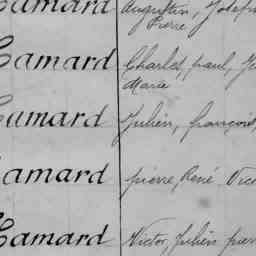 Augustin, Joseph
Pierre
Hamard Charles, paul, Ju
Marie
Hamard Julien, françois,
Hamard pierre, René Vic
Hamard Victor, Julien pier